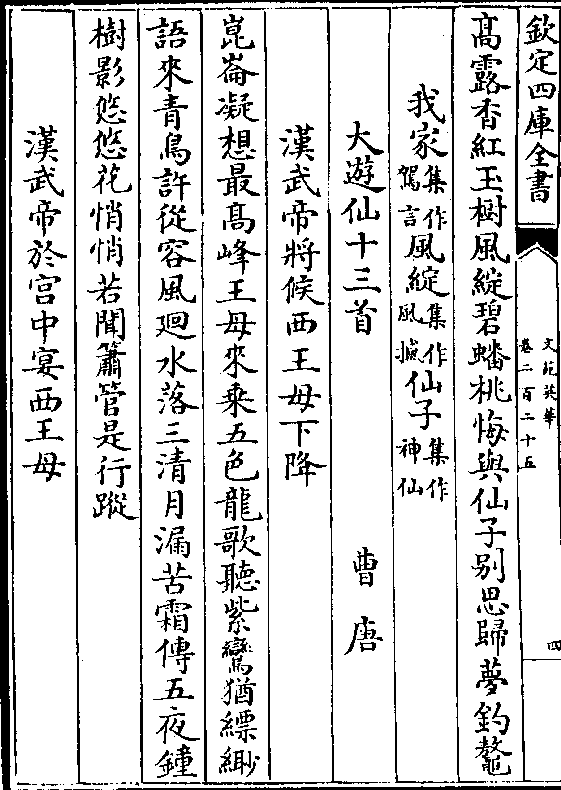 欽定四庫全書
文苑英華
卷二百二十五
四
髙露杏紅玉樹風綻碧蟠桃悔與仙子别思歸夢釣鼇
我家集作駕言風綻集作風撼仙子集作神仙
大遊仙十三首 曹唐
漢武帝將候西王母下降
崑崙凝想最髙峰王母來乗五色龍歌聽紫鸞猶縹緲
語來青鳥許從容風廻水落三清月漏苦霜傳五夜鐘
樹影悠悠花悄悄若聞簫管是行蹤
漢武帝於宫中宴西王母